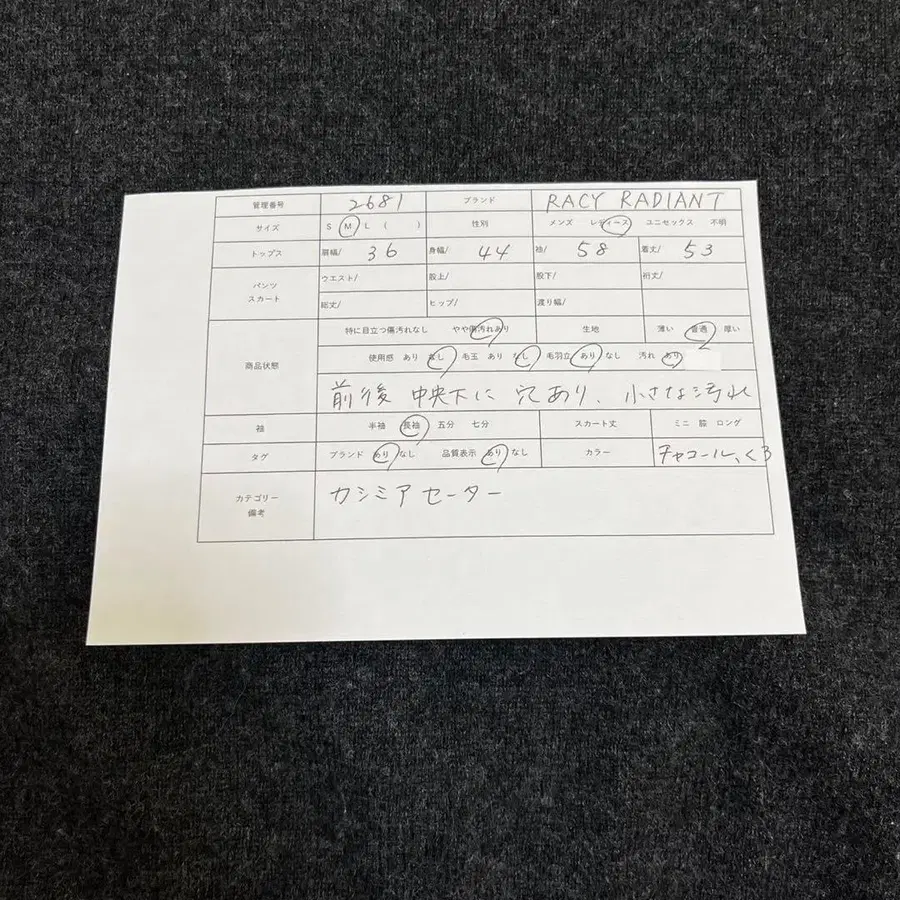 管理番号 2681 ブランド RACY RADIANT
サイズ S M L ( ) 性別 メンズ レディース ユニセックス 不明
トップス 肩幅/ 36 身幅/ 44 袖/ 58 着丈/ 53
パンツ スカート ウエスト/ 股上/ 股下/ 裄丈/
総丈/ ヒップ/ 渡り幅/
商品状態 特に目立つ傷汚れなし やや傷汚れあり 生地 薄い 普通 厚い
使用感 あり なし 毛玉 あり なし 毛羽立 あり なし 汚れ あり
前後 中央下に 穴あり、小さな汚れ
袖 半袖 長袖 五分 七分 スカート丈 ミニ 膝 ロング
タグ ブランド あり なし 品質表示 あり なし カラー チャコール、くろ
カテゴリー 備考 カシミアセーター